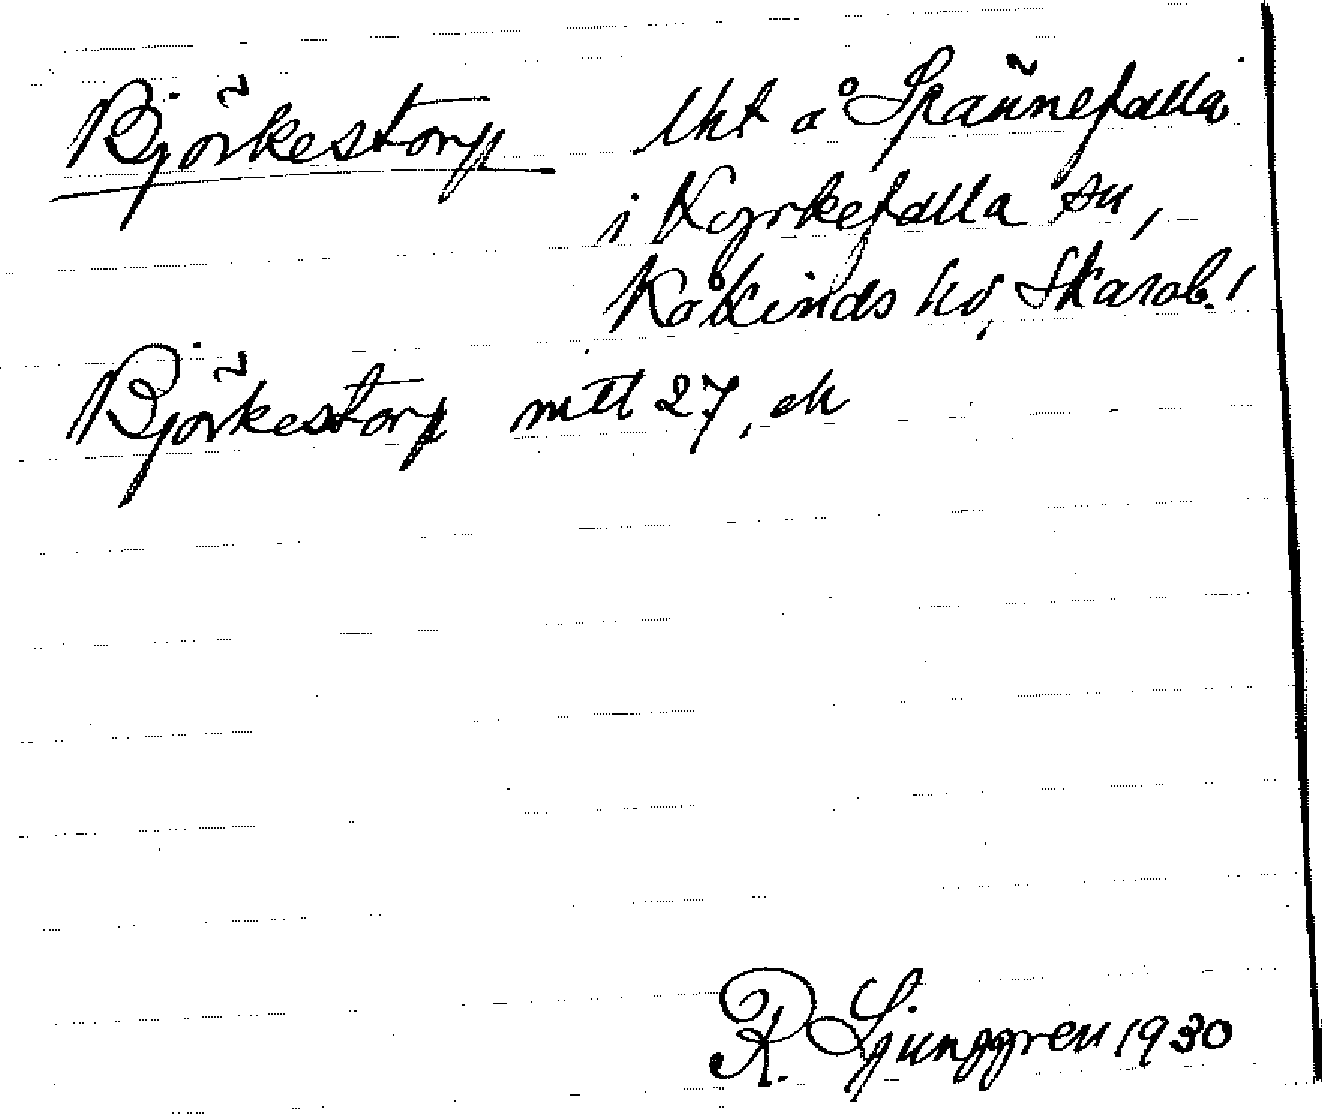 Björkestorp lht å Spännefalla
i Kyrkefalla sn,
Kåkinds hd, Skarab. l
Björkestorp mtl 27, ek
R. Ljunggren 1930